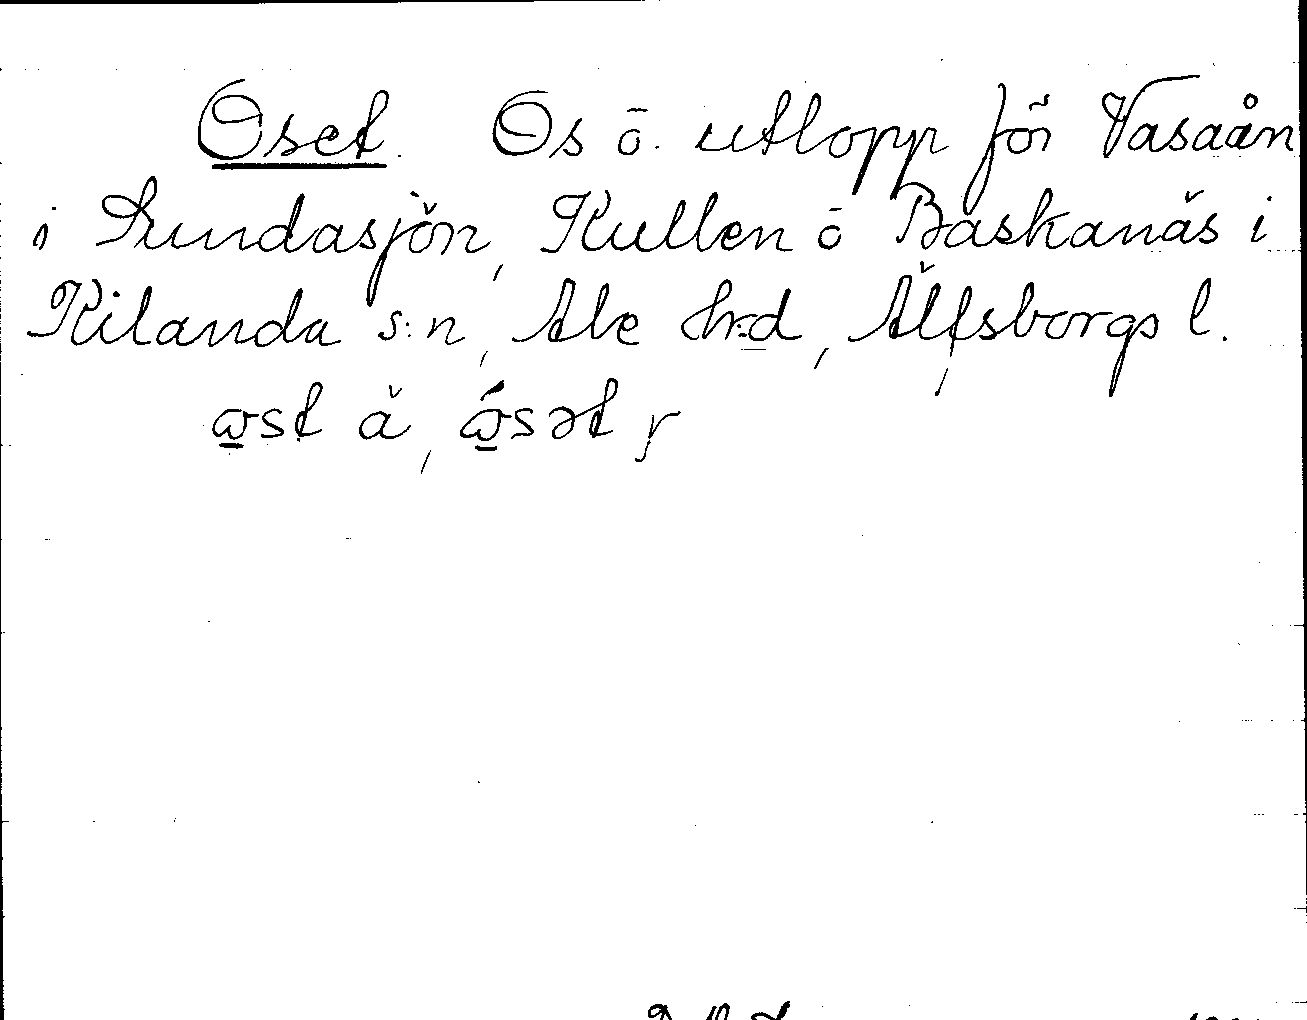 Oset. Os ö. utlopp för Vasaån
i Sundasjön, Kullen ö Baskanäs i
Kilanda s:n, Ale h:d, Älfsborgs l.
ωst ä, ώsət